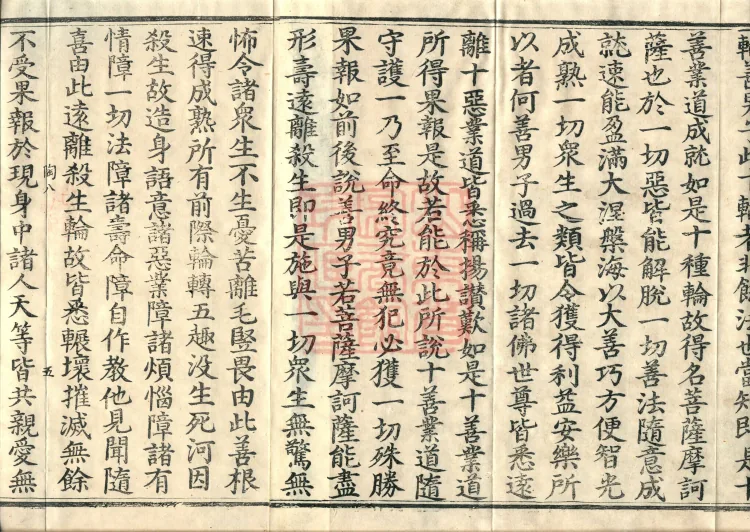 善業道成就如是十種輪故得名菩薩摩訶
薩也於一切惡皆能解脫一切善法隨意成
就速能盈滿大涅槃海以大善巧方便智光
成熟一切衆生之類皆令獲得利益安樂所
以者何善男子過去一切諸佛世尊皆悉遠
離十惡業道皆悉稱揚讚歎如是十善業道
所得果報是故若能於此所說十善業道隨
守護一乃至命終究竟無犯必獲一切殊勝
果報如前後說善男子若菩薩摩訶薩能盡
形壽遠離殺生即是施與一切衆生無驚無
怖令諸衆生不生憂苦離毛豎畏由此善根
速得成熟所有前際輪轉五趣没生死河因
殺生故造身語意諸惡業障諸煩惱障諸有
情障一切法障諸壽命障自作教他見聞隨
喜由此遠離殺生輪故皆悉輾壞摧滅無餘
陶八 五
不受果報於現身中諸人天等皆共親愛無